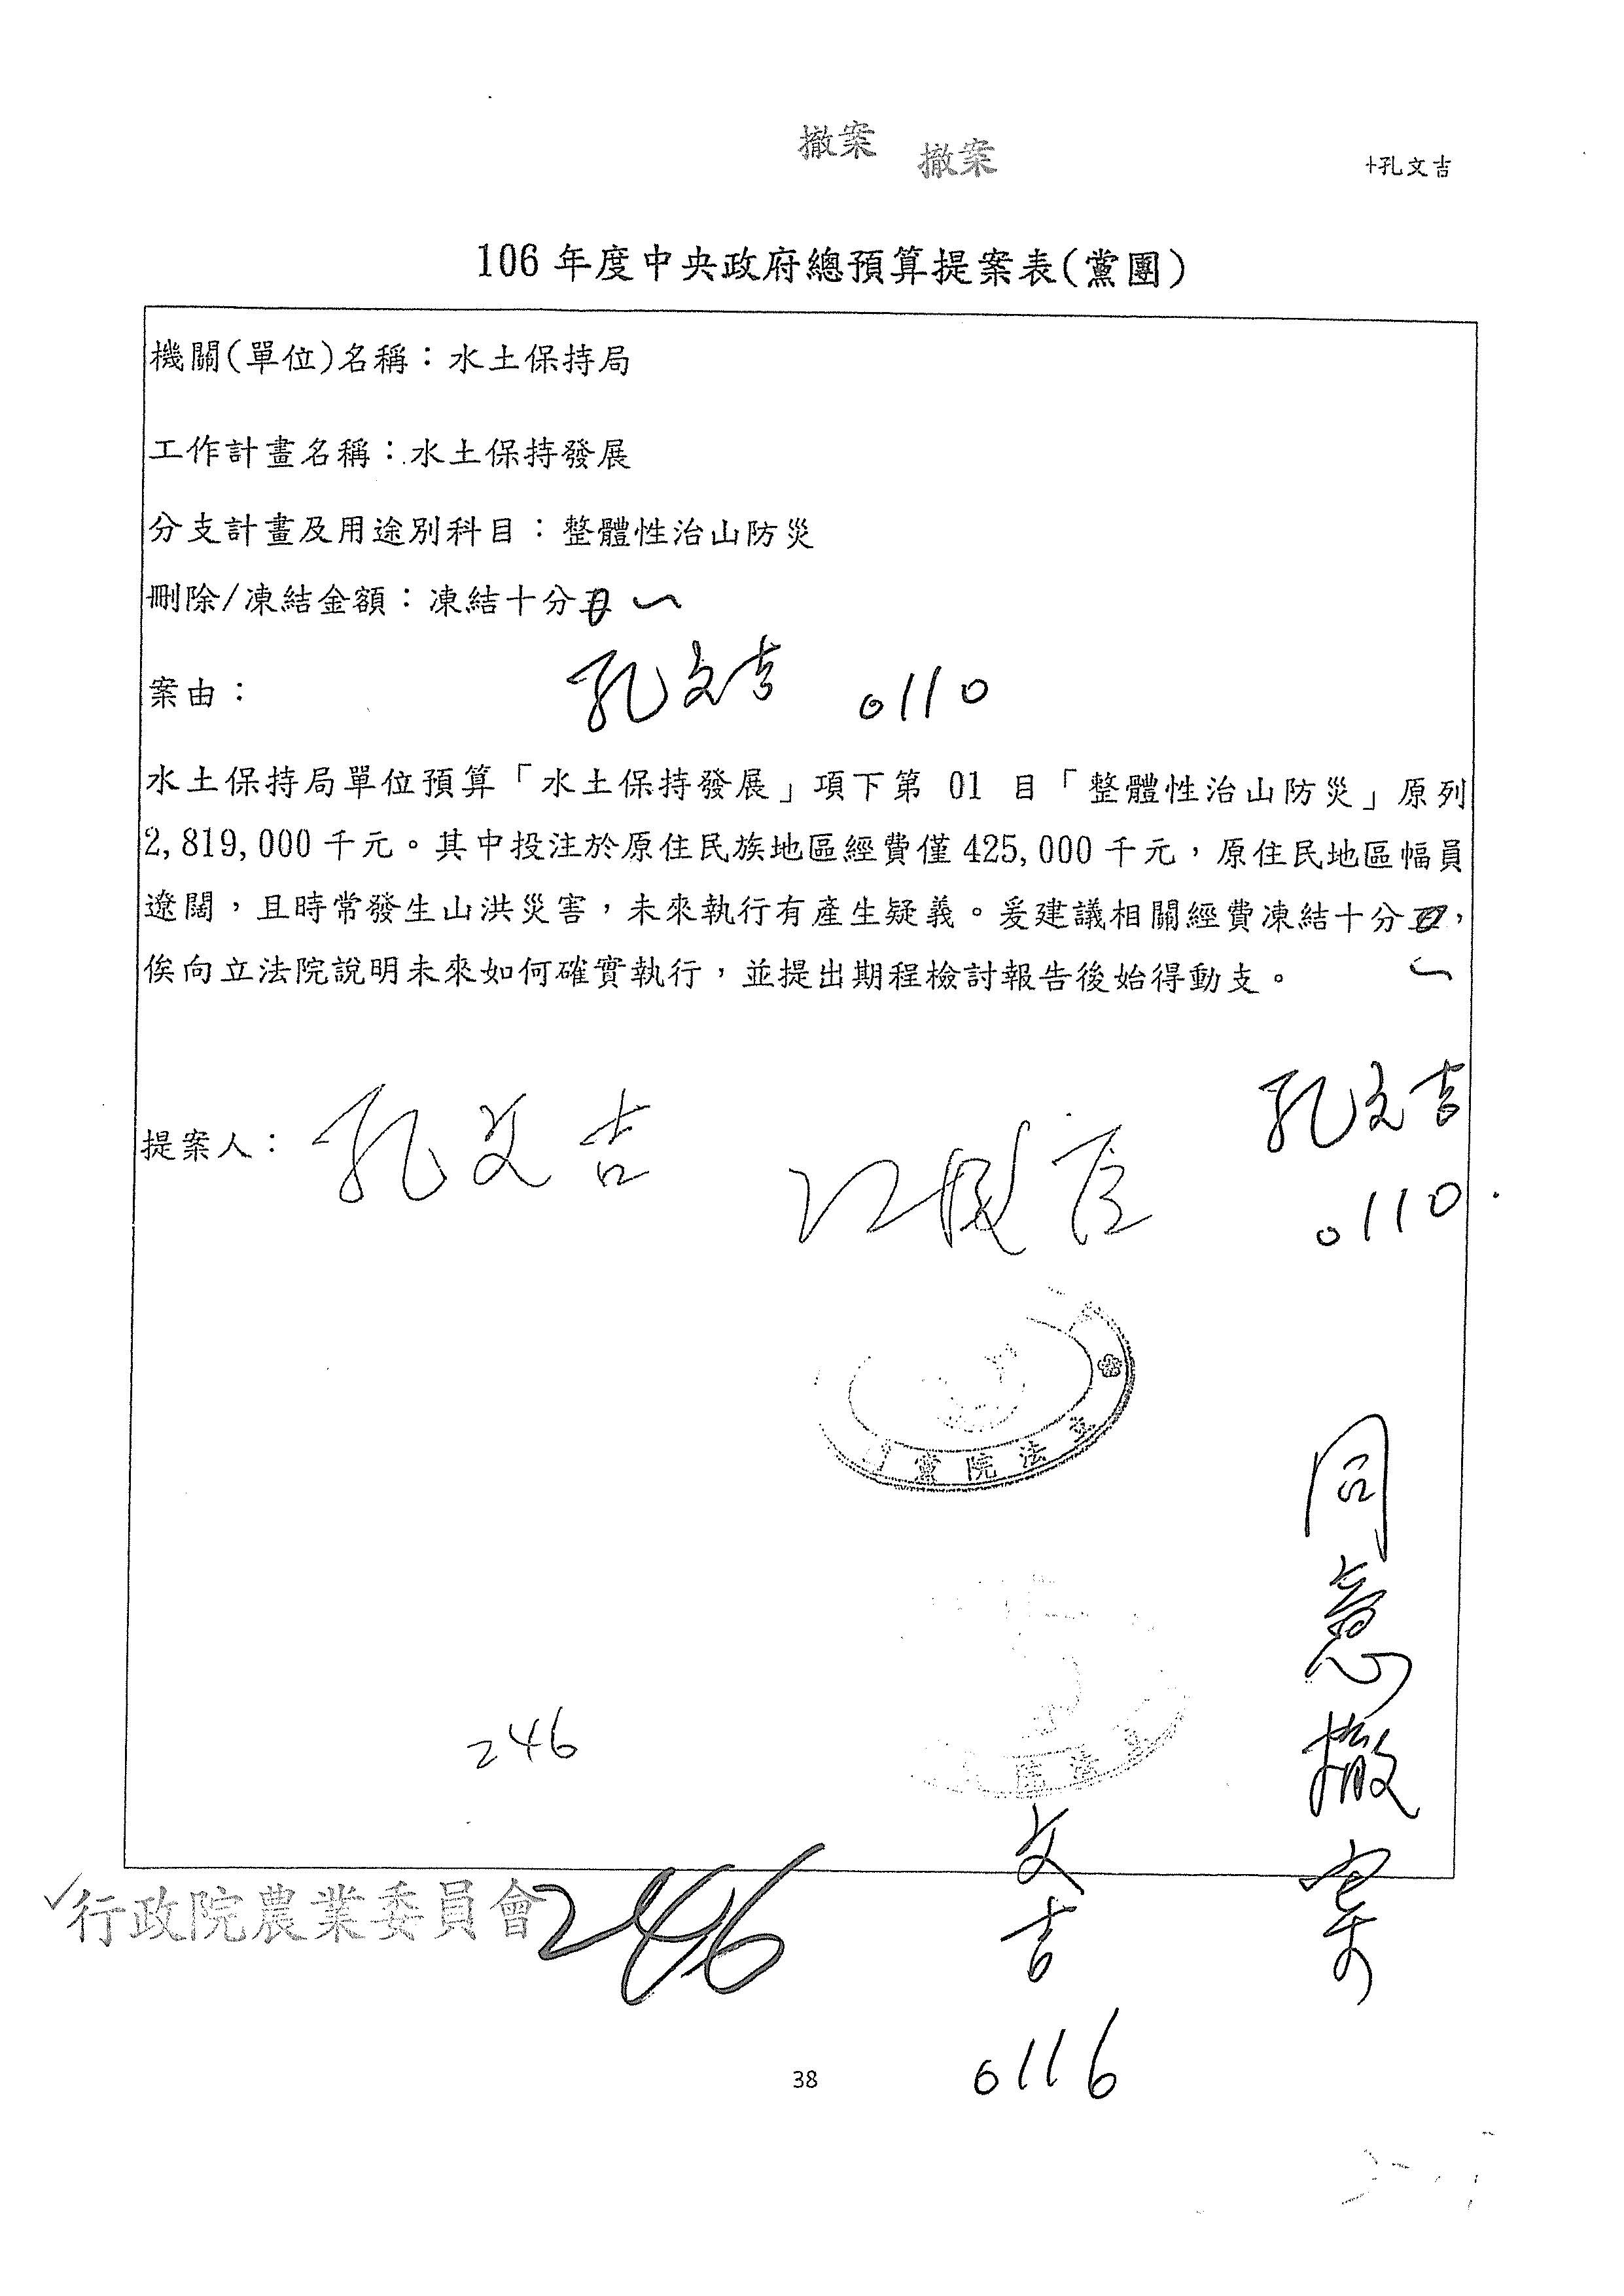 撤案 撤案
孔文吉
106 年度中央政府總預算提案表(黨團)
機關(單位)名稱：水土保持局
工作計畫名稱：水土保持發展
分支計畫及用途別科目：整體性治山防災
刪除/凍結金額：凍結十分 一
孔文吉 0110
案由：
水土保持局單位預算「水土保持發展」項下第 01 目「整體性治山防災」原列
2,819,000 千元。其中投注於原住民族地區經費僅 425,000 千元，原住民地區幅員
遼闊，且時常發生山洪災害，未來執行有產生疑義。爰建議相關經費凍結十分 ，
一
俟向立法院說明未來如何確實執行，並提出期程檢討報告後始得動支。
孔文吉
0110
提案人：孔文吉
立法院黨
立法院
同意撤案
246
文吉
0116
行政院農業委員會
246
38